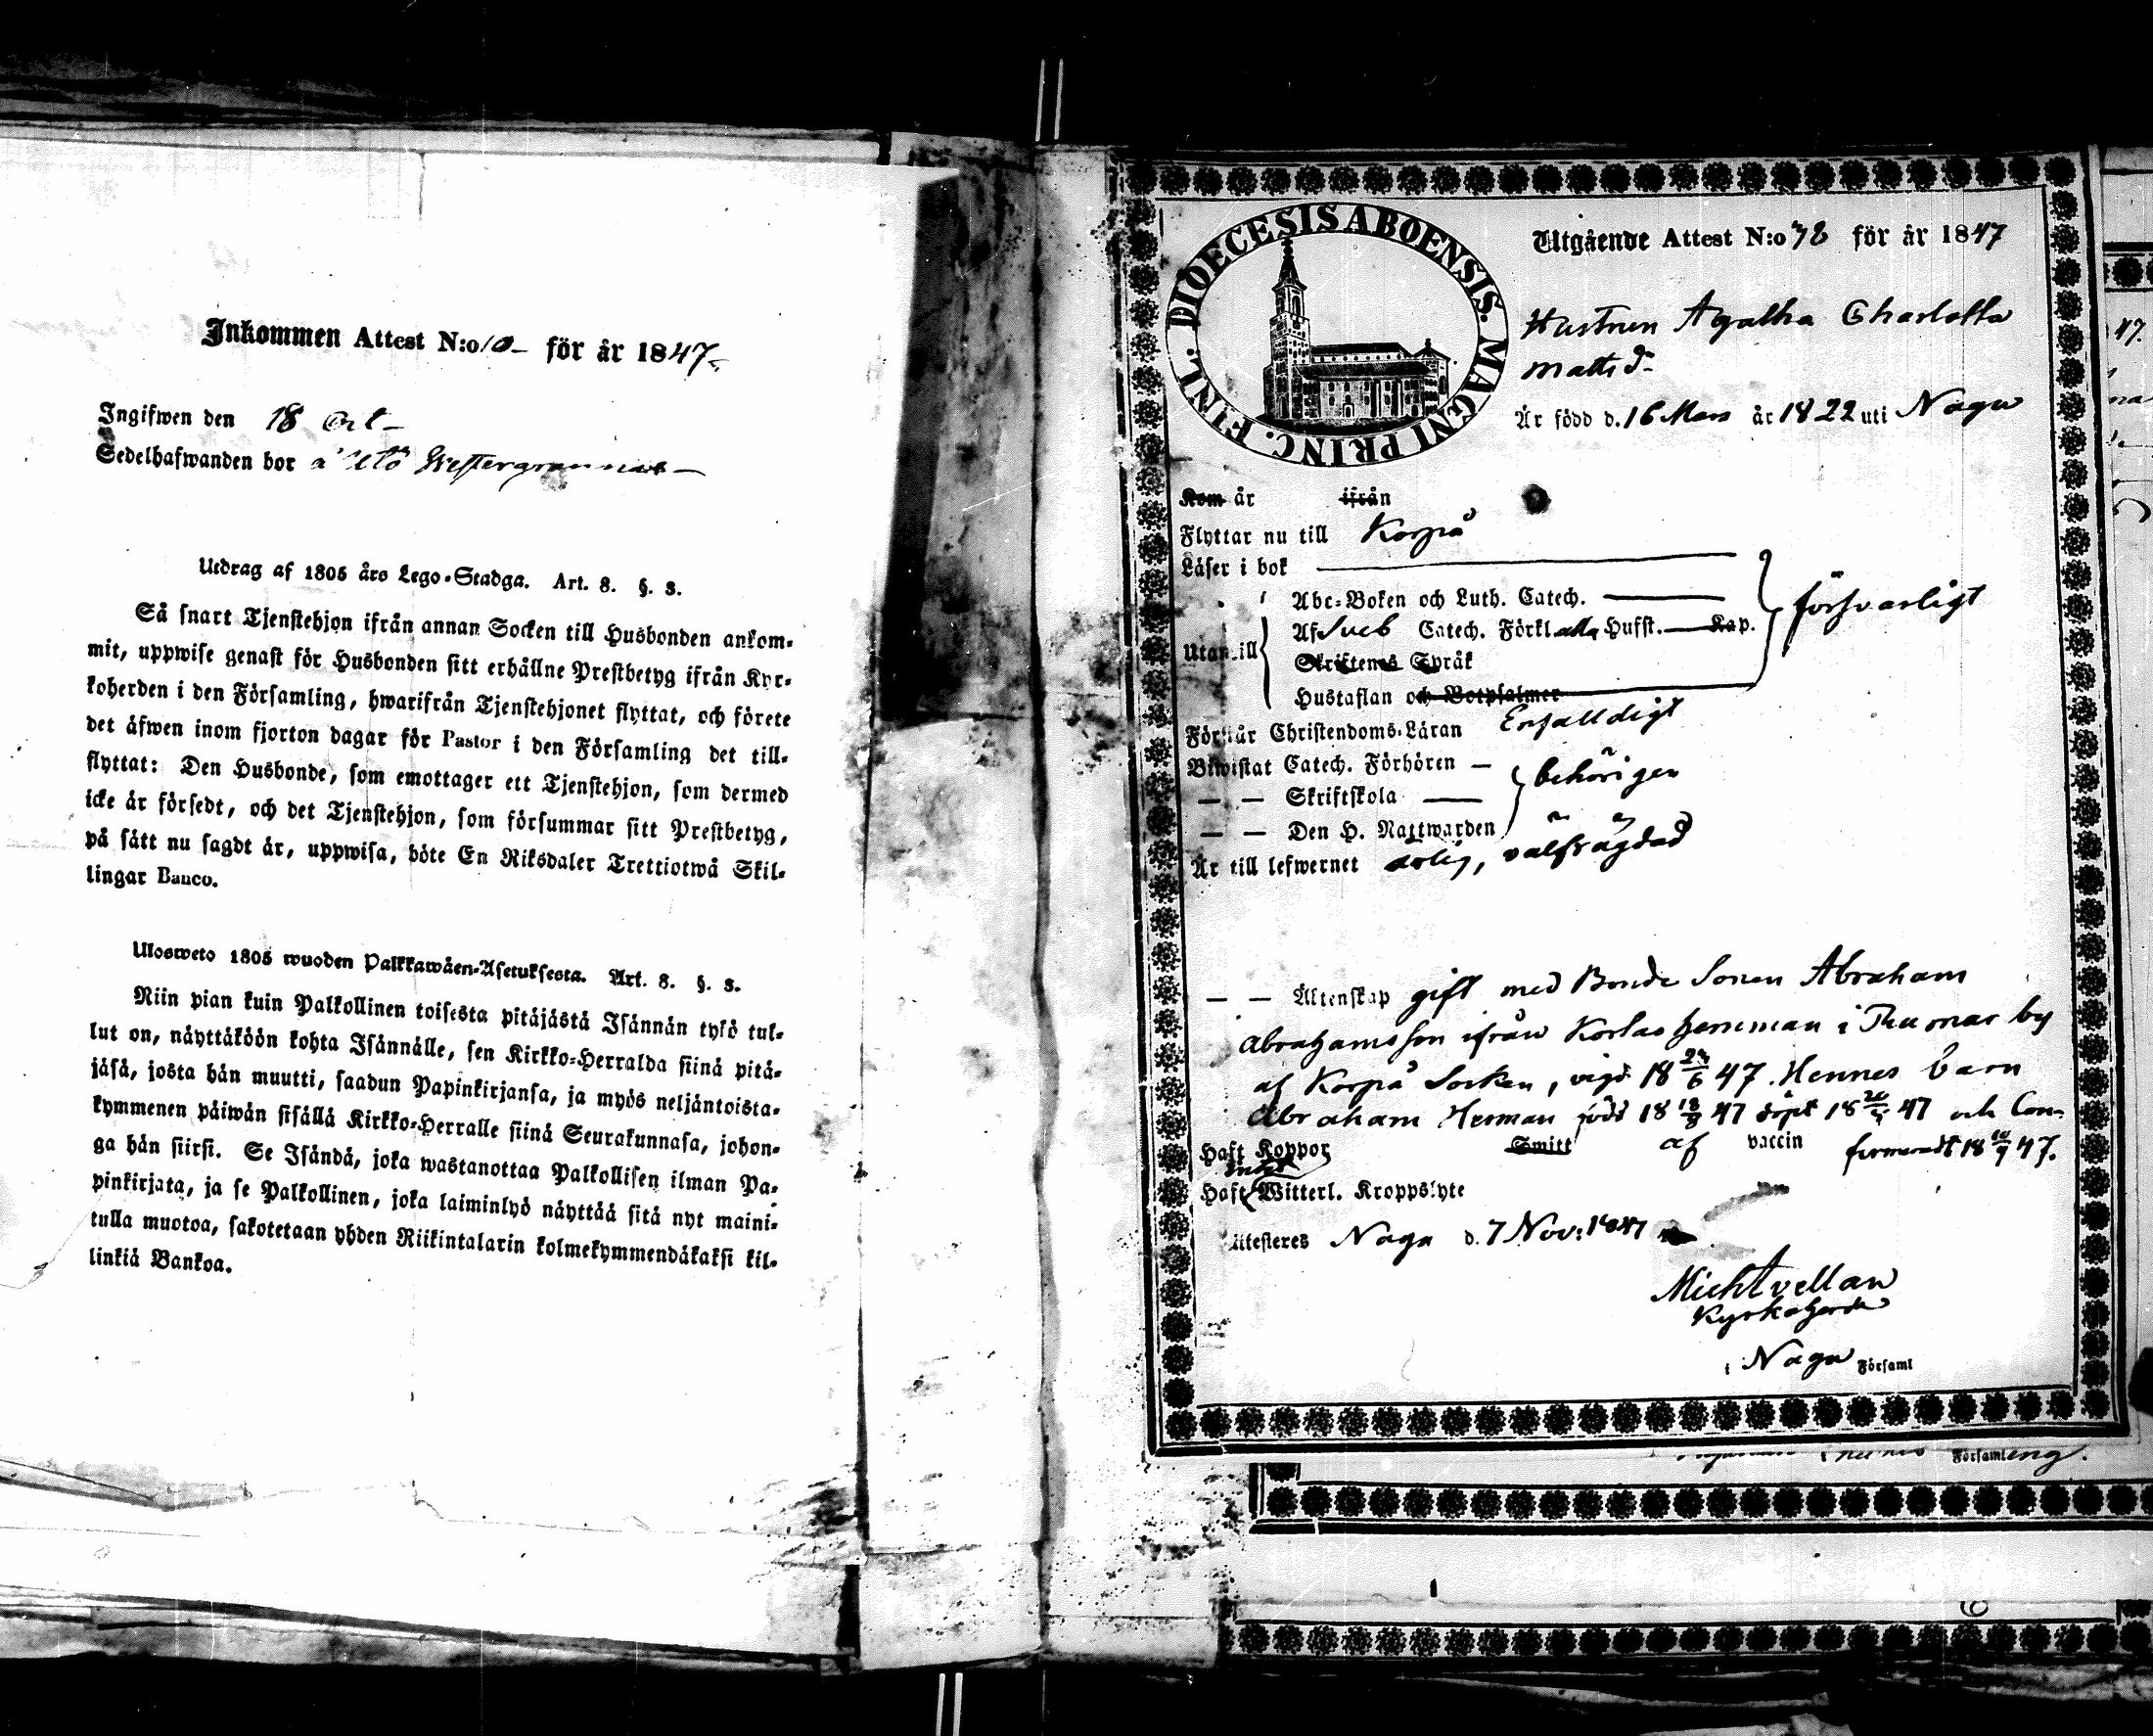 Inkommen Attest N:o 10 – för år 1847
Ingifwen den 18 Oct –
Sedelhafwanden bor å Utö Westergrannas –
Utdrag af 1805 års Lego-Stadga. Art. 8. §. 3.
Så snart Tjenstehjon ifrån annan Socken till Husbonden ankom-
mit, uppwise genast för Husbonden sitt erhållne Prestbetyg ifrån Kyr-
koherden i den Församling, hwarifrån Tjenstehjonet flyttat, och förete
det äfwen inom fjorton dagar för Pastor i den Församling det till-
flyttat: Den Husbonde, som emottager ett Tjenstehjon, som dermed
icke är försedt, och det Tjenstehjon, som försummar sitt Prestbetyg,
på sätt nu sagdt är, uppwisa, böte En Riksdaler Trettiotwå Skil-
lingar Banco.
Ulosweto 1805 wuoden Palkkawäen-Asetuksesta. Art. 8. §. 3.
Niin pian kuin Palkollinen toisesta pitäjästä Isännän tykö tul-
lut on, näyttäköön kohta Isännälle, sen Kirkko-Herralda siinä pitä-
jäsä, josta hän muutti, saadun Papinkirjansa, ja myös neljäntoista-
kymmenen päiwän sisällä Kirkko-Herralle siinä Seurakunnasa, johon-
ga hän siirsi. Se Isändä, joka wastanottaa Palkollisen ilman Pa-
pinkirjata, ja se Palkollinen, joka laiminlyö näyttää sitä nyt maini-
tulla muotoa, sakotetaan yhden Riikintalarin kolmekymmendäkaksi kil-
linkiä Bankoa.
DIOECESIS ABOENSIS. MAGNI PRINC. FINL.
Utgående Attest N:o 78 för år 1847
Hustrun Agatha Charlotta
Matts d.
Är född d. 16 Mars år 1822 uti Nagu
Kom år ifrån
Flyttar nu till Korpo
Läser i bok
Abc-Boken och Luth. Catech.
Af Sveb Catech. Förkl alla Husst. Kap.
Utantill
Skriftenes Språk
försvarligt
Hustaflan och Botpsalmer
Förstår Christendoms-Läran Enfalldigt
Biwistat Catech. Förhören –
– – Skriftskola behörigen
– – Den H. Nattwarden
Är till lefwernet ärlig, välfrägdad
– – Äktenskap gift med Bonde Sonen Abraham
Abrahamsson ifrån Korlas hemman i by
af Korpo Socken, vigd 18 24/6 47. Hennes barn
Abraham Herman född 18 18/8 47 döpt 18 47 och Con-
Haft Koppor Smitt af vaccin firmeradt 18 47.
Haft intet Witterl. Kroppslyte
Attesteres Nagu d. 7 Nov: 1847
Mich Avellan
Kyrkoherde
i Nagu Församl
Församling.